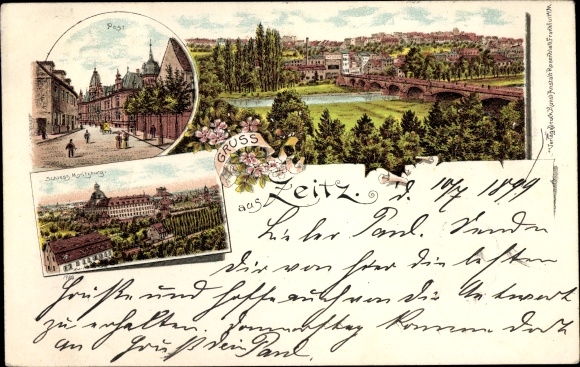 Post
Schloss Moritzburg
GRUSS
aus Zeitz.
d. 10/7 1899
Lieber Paul. Sende
Dir von hier die besten
Grüße und hoffe auch von Dir Antwort
zu erhalten. Donnerstag komme doch
an Gruß Dein Paul.